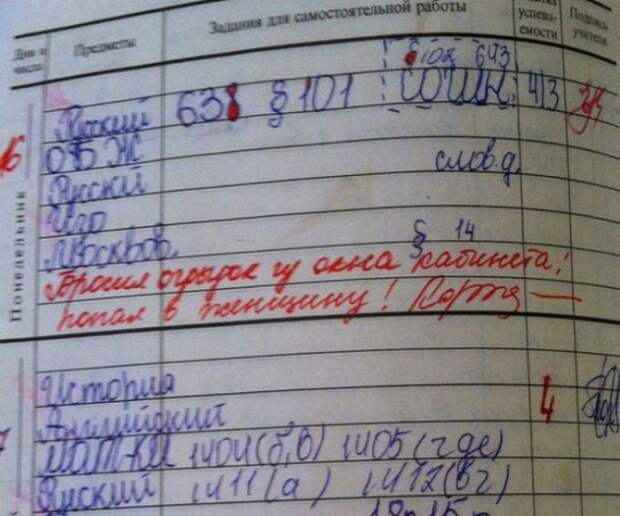 Дни и числа Предметы Задания для самостоятельной работы успева- емости Подпись учителя
§102 643
Русский 638 §101 СОЧИН 4/3
16 ОБЖ
Русский слов.д.
Изо
Москвов. § 14
Понедельник
Бросил огрызок из окна кабинета,
попал в женщину!
История
Английский 4
7 МАТ-КА 1404(б,в) 1405(где)
Русский 1411(а) 1412(вг)